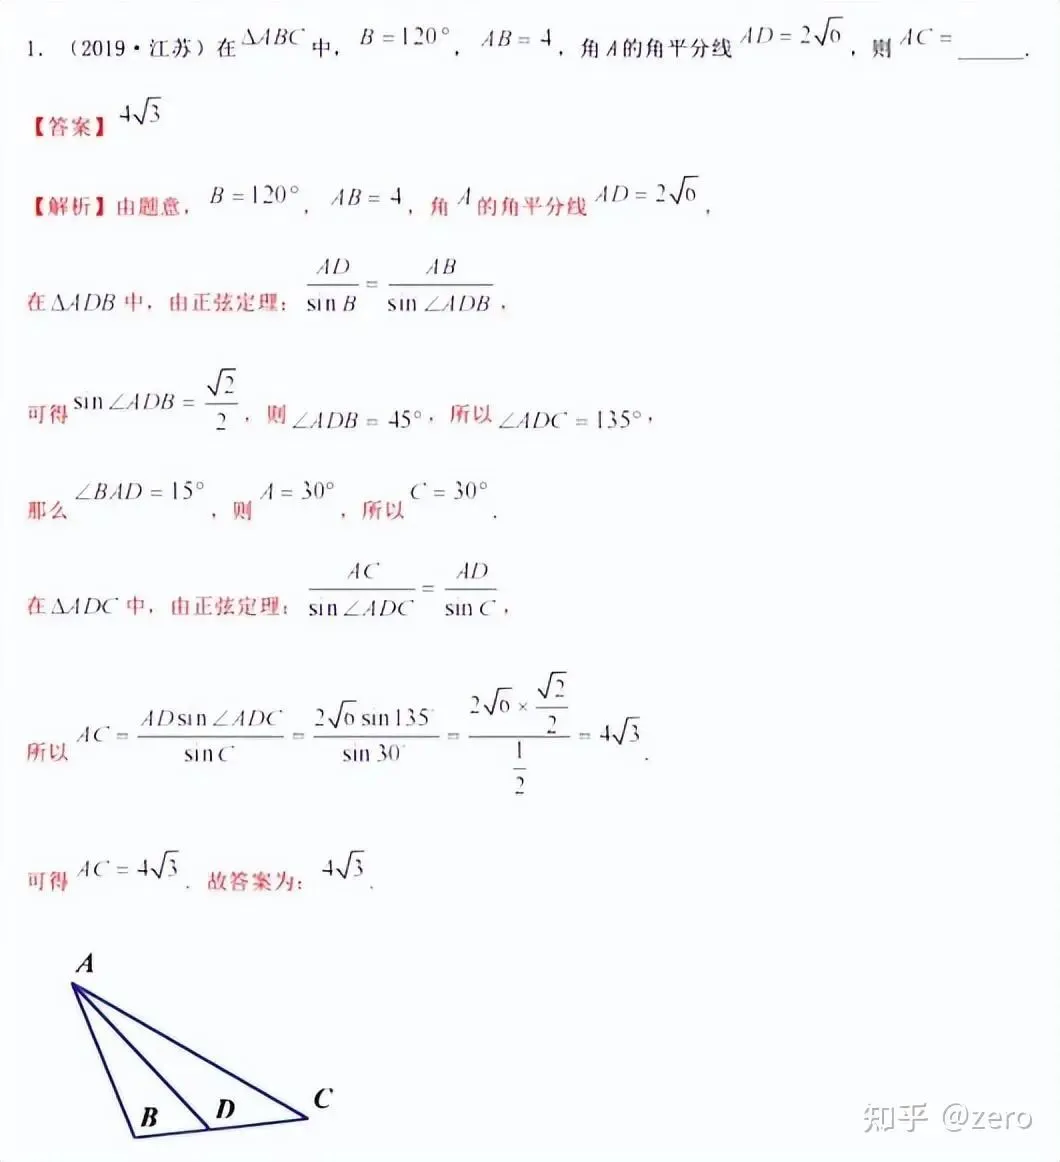 1. （2019·江苏）在 ΔABC 中， B=120°， AB=4，角 A 的角平分线 AD=2√6，则 AC= ______.
【答案】 4√3
【解析】由题意， B=120°， AB=4，角 A 的角平分线 AD=2√6，
在 ΔADB 中，由正弦定理： AD/sin B = AB/sin∠ADB，
可得 sin∠ADB = √2/2，则 ∠ADB = 45°，所以 ∠ADC = 135°，
那么 ∠BAD = 15°，则 A = 30°，所以 C = 30°.
在 ΔADC 中，由正弦定理： AC/sin∠ADC = AD/sin C，
所以 AC = ADsin∠ADC/sin C = 2√6 sin135°/sin 30° = (2√6 × √2/2)/(1/2) = 4√3.
可得 AC = 4√3. 故答案为： 4√3.
A
B D C
知乎 @zero